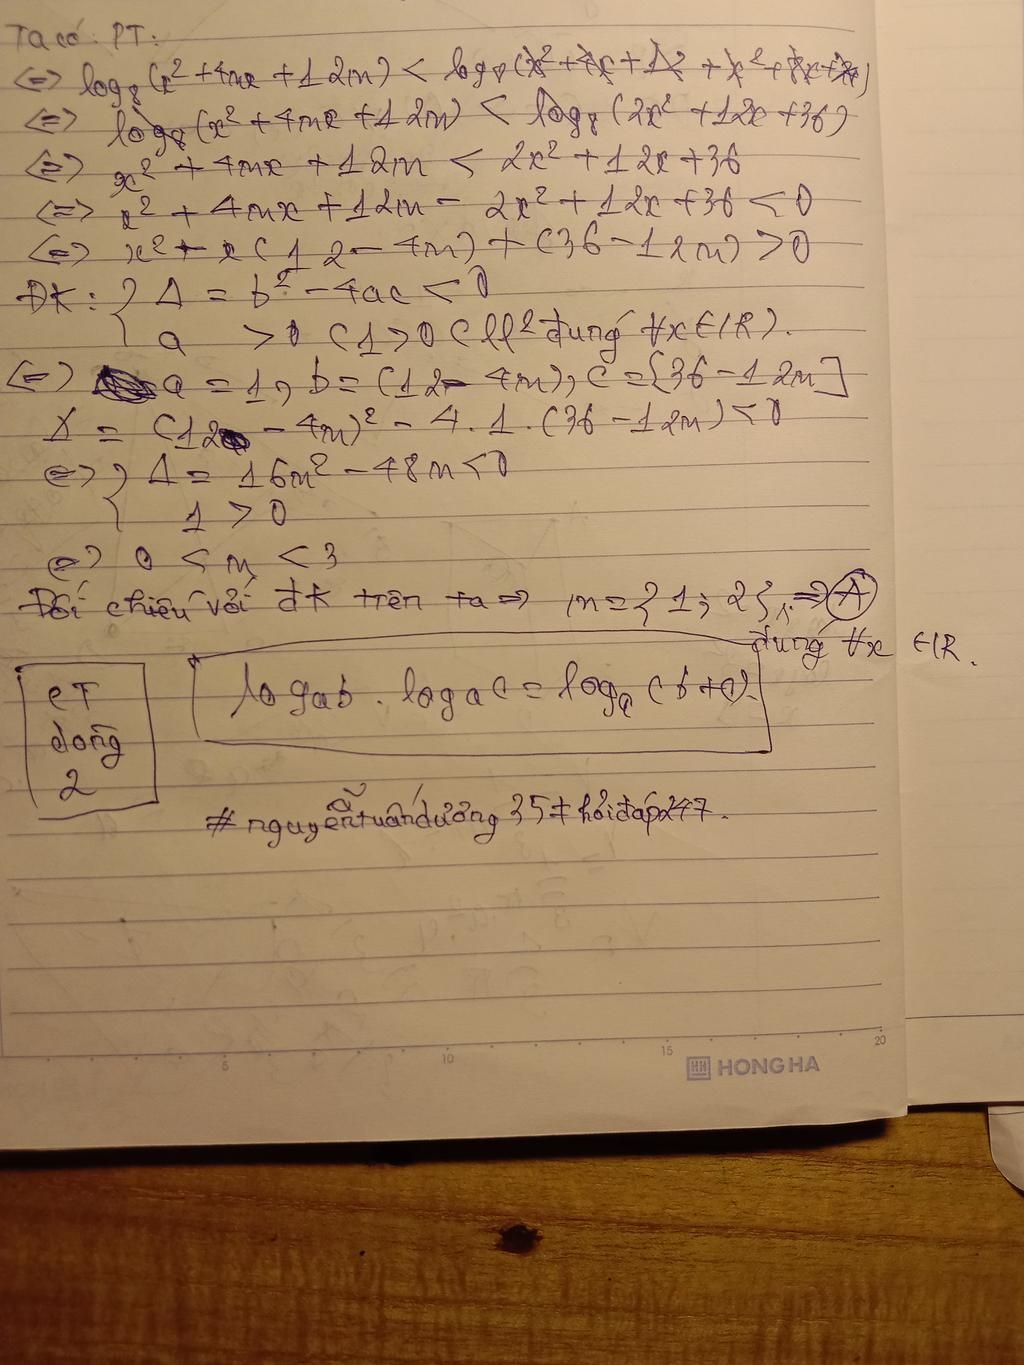 Ta có: PT:
<=> log₈(x² + 4mx + 12m) < log₈(x² + 4x + 12 + x² + 8x + 24)
<=> log₈(x² + 4mx + 12m) < log₈(2x² + 12x + 36)
<=> x² + 4mx + 12m < 2x² + 12x + 36
<=> x² + 4mx + 12m - 2x² + 12x + 36 < 0
<=> x² + x(12 - 4m) + (36 - 12m) > 0
ĐK: { Δ = b² - 4ac < 0
a > 0 (1 > 0 (ll² đúng ∀x ∈ IR).
<=> a = 1, b = (12 - 4m), c = [36 - 12m]
Δ = (12 - 4m)² - 4.1.(36 - 12m) < 0
<=> { Δ = 16m² - 48m < 0
1 > 0
<=> 0 < m < 3
Đối chiếu với đk trên ta => m = {1; 2}, => A
đúng ∀x ∈ IR.
CT
dòng
2
logab . logac = logₐ(b + c).
#nguyễntuấndương357hỏiđáp247.
5 10 15 20
HH HONG HA